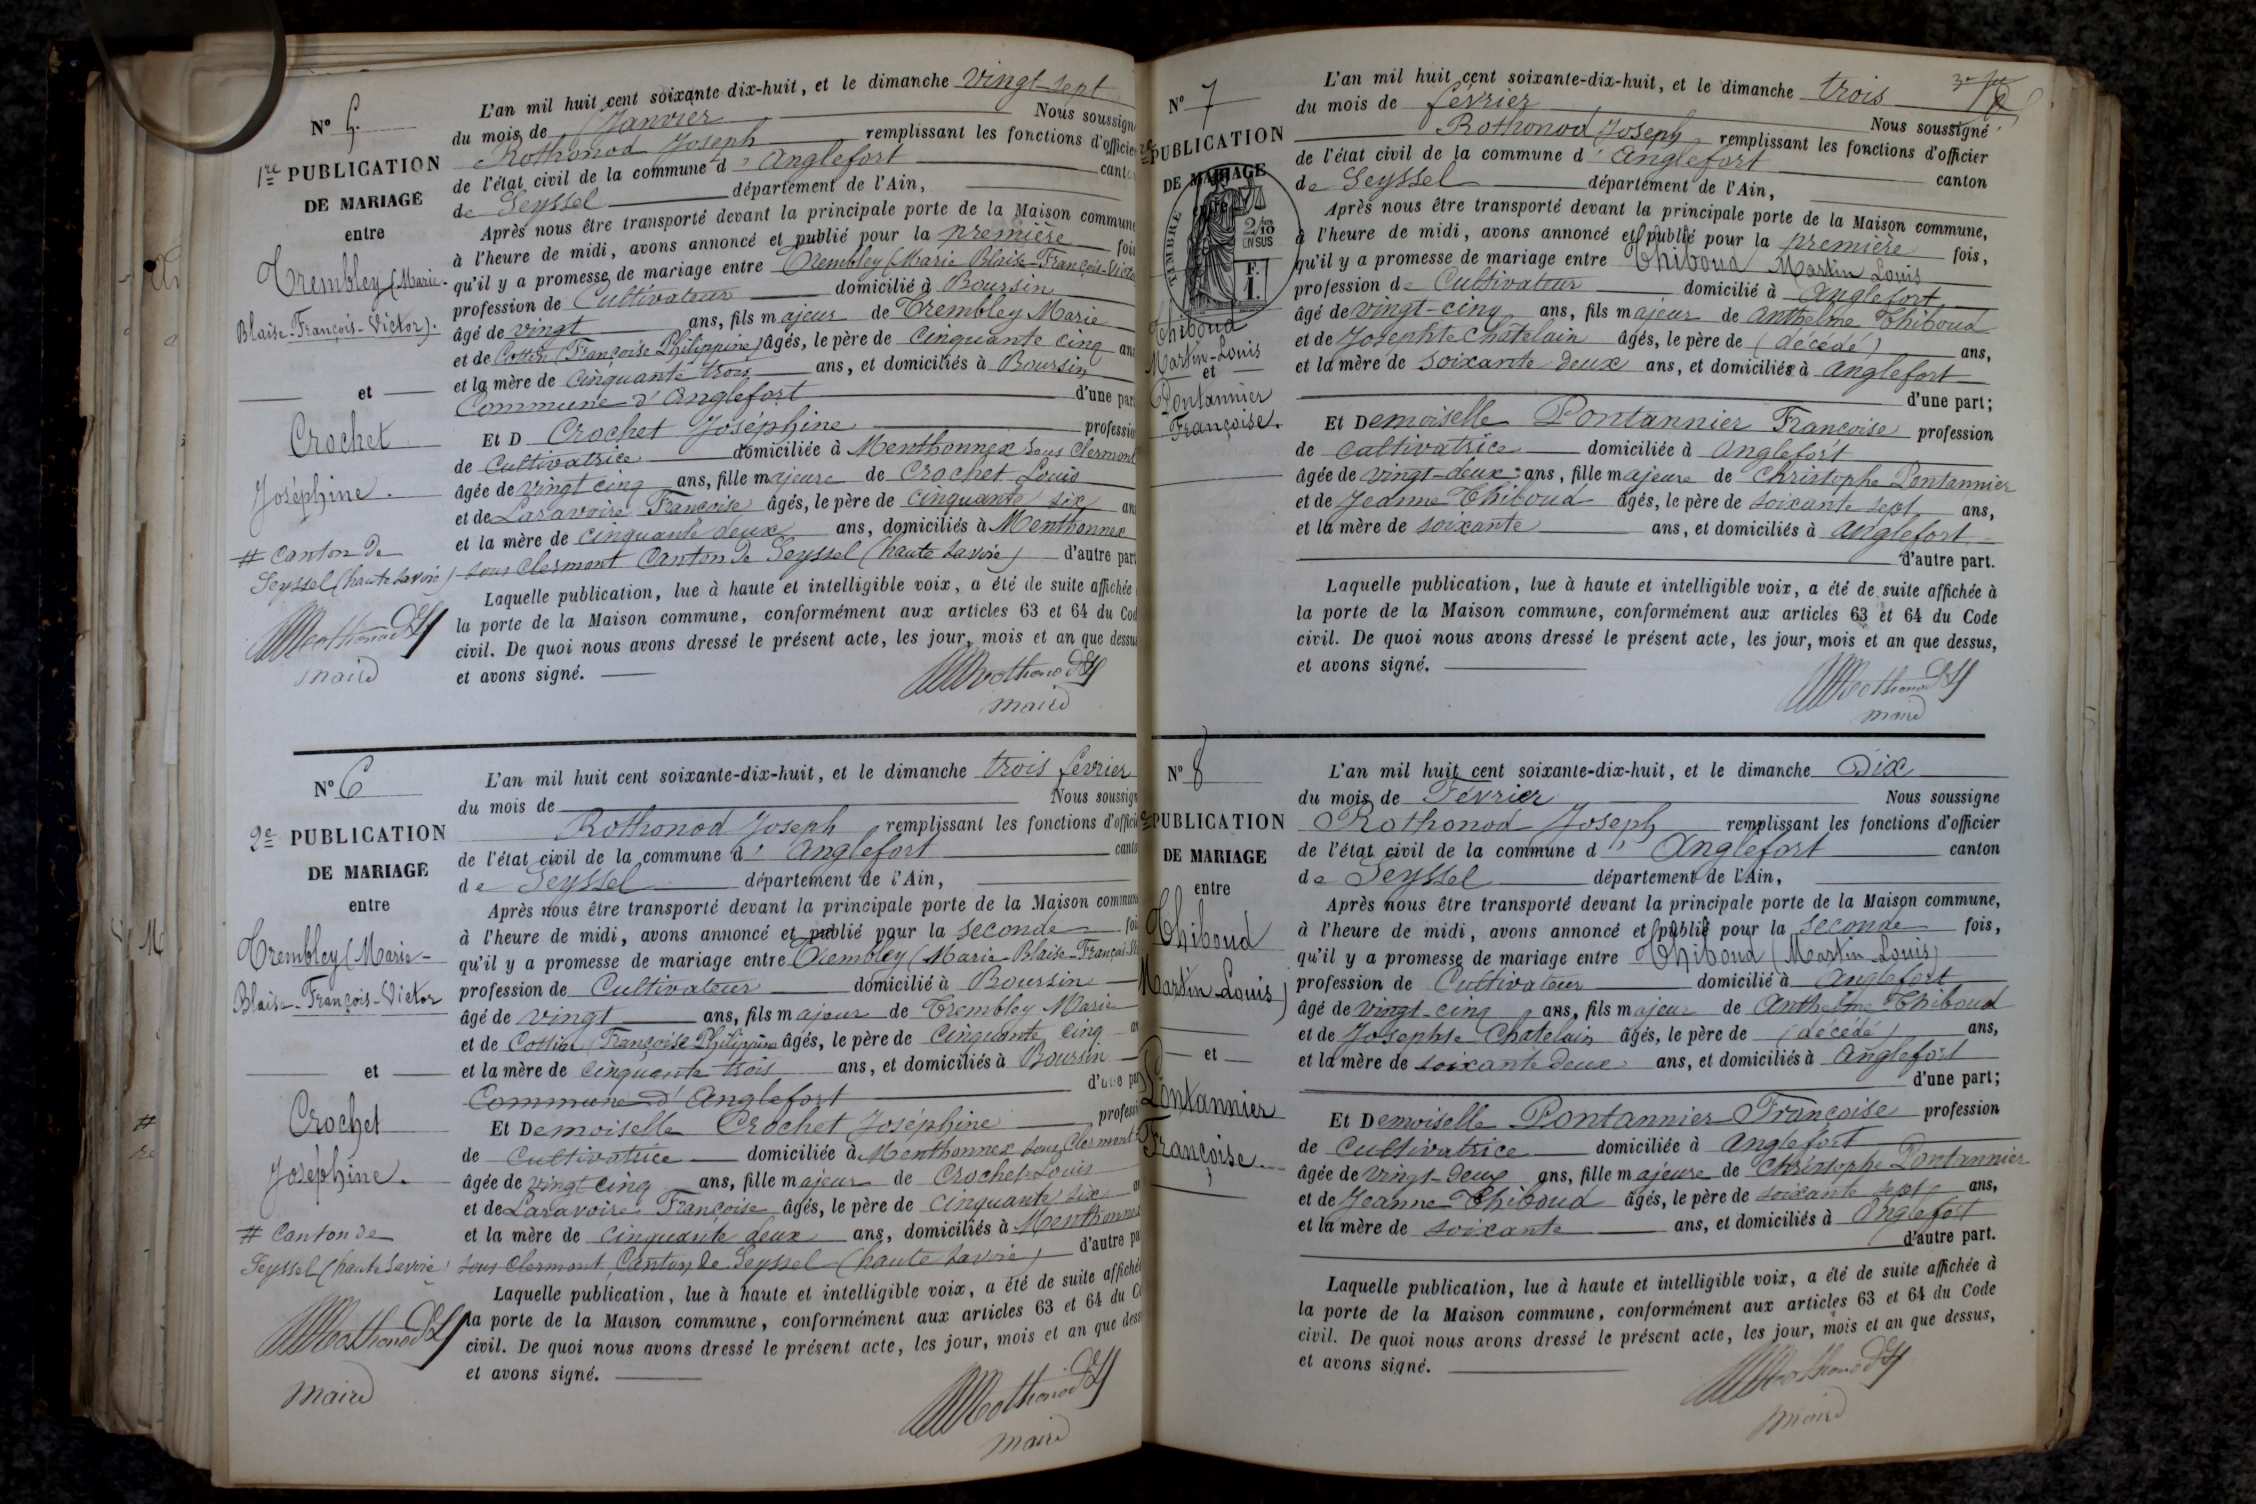 N° 5.
1re PUBLICATION
DE MARIAGE
entre
Trembley (Marie-
Blaise-François-Victor).
et
Crochet
Joséphine.
# Canton de
Seyssel (haute Savoie)
Rothonod
maire
L'an mil huit cent soixante-dix-huit, et le dimanche vingt-sept
du mois de Janvier Nous soussign
Rothonod Joseph remplissant les fonctions d'officie
de l'état civil de la commune d' Anglefort cant
de Seyssel département de l'Ain,
Après nous être transporté devant la principale porte de la Maison commune
à l'heure de midi, avons annoncé et publié pour la première fois
qu'il y a promesse de mariage entre Trembley (Marie Blaise-François-Victo
profession de Cultivateur domicilié à Boursin
âgé de vingt ans, fils majeur de Trembley Marie
et de Cottin (Françoise Philippine) âgés, le père de cinquante cinq ans
et la mère de cinquante trois ans, et domiciliés à Boursin
Commune d'Anglefort d'une part
Et D Crochet Joséphine profession
de Cultivatrice domiciliée à Menthonnex sous Clermont
âgée de vingt cinq ans, fille majeure de Crochet Louis
et de Laravoire Françoise âgés, le père de cinquante six ans
et la mère de cinquante deux ans, domiciliés à Menthonnex
sous Clermont Canton de Seyssel (haute Savoie) d'autre part
Laquelle publication, lue à haute et intelligible voix, a été de suite affichée
la porte de la Maison commune, conformément aux articles 63 et 64 du Cod
civil. De quoi nous avons dressé le présent acte, les jour, mois et an que dessu
et avons signé.
Rothonod
maire
N° 6
2e PUBLICATION
DE MARIAGE
entre
Trembley (Marie-
Blaise-François-Victor
et
Crochet
Joséphine.
# Canton de
Seyssel (haute Savoie)
Rothonod
maire
L'an mil huit cent soixante-dix-huit, et le dimanche trois février
du mois de Nous soussign
Rothonod Joseph remplissant les fonctions d'offici
de l'état civil de la commune d' Anglefort canto
de Seyssel département de l'Ain,
Après nous être transporté devant la principale porte de la Maison commune
à l'heure de midi, avons annoncé et publié pour la seconde foi
qu'il y a promesse de mariage entre Trembley (Marie-Blaise-François-Vi
profession de Cultivateur domicilié à Boursin
âgé de vingt ans, fils majeur de Trembley Marie
et de Cottin (Françoise Philippine âgés, le père de cinquante cinq
et la mère de cinquante trois ans, et domiciliés à Boursin
Commune d'Anglefort d'une par
Et Demoiselle Crochet Joséphine professi
de Cultivatrice domiciliée à Menthonnex sous Clermont
âgée de vingt cinq ans, fille majeur de Crochet Louis
et de Laravoire Françoise âgés, le père de cinquante six
et la mère de cinquante deux ans, domiciliés à Menthonnex
sous Clermont, Canton de Seyssel (haute Savoie) d'autre pa
Laquelle publication, lue à haute et intelligible voix, a été de suite affichée
la porte de la Maison commune, conformément aux articles 63 et 64 du Co
civil. De quoi nous avons dressé le présent acte, les jour, mois et an que dess
et avons signé.
Rothonod
maire
N° 7
PUBLICATION
DE MARIAGE
entre
TIMBRE
2/10
EN SUS
F.
1.
Thiboud
Martin-Louis
et
Pontannier
Françoise.
L'an mil huit cent soixante-dix-huit, et le dimanche trois
du mois de février Nous soussigné
Rothonod Joseph remplissant les fonctions d'officier
de l'état civil de la commune d' Anglefort canton
de Seyssel département de l'Ain,
Après nous être transporté devant la principale porte de la Maison commune,
à l'heure de midi, avons annoncé et publié pour la première fois,
qu'il y a promesse de mariage entre Thiboud Martin Louis
profession de Cultivateur domicilié à Anglefort
âgé de vingt-cinq ans, fils majeur de Anthelme Thiboud
et de Josephte Chatelain âgés, le père de (décédé) ans,
et la mère de soixante deux ans, et domiciliés à Anglefort
d'une part;
Et Demoiselle Pontannier Françoise profession
de cultivatrice domiciliée à Anglefort
âgée de vingt-deux ans, fille majeure de Christophe Pontannier
et de Jeanne Thiboud âgés, le père de soixante sept ans,
et la mère de soixante ans, et domiciliés à Anglefort
d'autre part.
Laquelle publication, lue à haute et intelligible voix, a été de suite affichée à
la porte de la Maison commune, conformément aux articles 63 et 64 du Code
civil. De quoi nous avons dressé le présent acte, les jour, mois et an que dessus,
et avons signé.
Rothonod
maire
N° 8
PUBLICATION
DE MARIAGE
entre
Thiboud
Martin-Louis)
et
Pontannier
Françoise
L'an mil huit cent soixante-dix-huit, et le dimanche Dix
du mois de Février Nous soussigne
Rothonod Joseph remplissant les fonctions d'officier
de l'état civil de la commune d' Anglefort canton
de Seyssel département de l'Ain,
Après nous être transporté devant la principale porte de la Maison commune,
à l'heure de midi, avons annoncé et publié pour la seconde fois,
qu'il y a promesse de mariage entre Thiboud (Martin Louis)
profession de Cultivateur domicilié à Anglefort
âgé de vingt-cinq ans, fils majeur de Anthelme Thiboud
et de Josephte Chatelain âgés, le père de (décédé) ans,
et la mère de soixante deux ans, et domiciliés à Anglefort
d'une part;
Et Demoiselle Pontannier Françoise profession
de Cultivatrice domiciliée à Anglefort
âgée de vingt-deux ans, fille majeure de Christophe Pontannier
et de Jeanne Thiboud âgés, le père de soixante sept ans,
et la mère de soixante ans, et domiciliés à Anglefort
d'autre part.
Laquelle publication, lue à haute et intelligible voix, a été de suite affichée à
la porte de la Maison commune, conformément aux articles 63 et 64 du Code
civil. De quoi nous avons dressé le présent acte, les jour, mois et an que dessus,
et avons signé.
Rothonod
maire